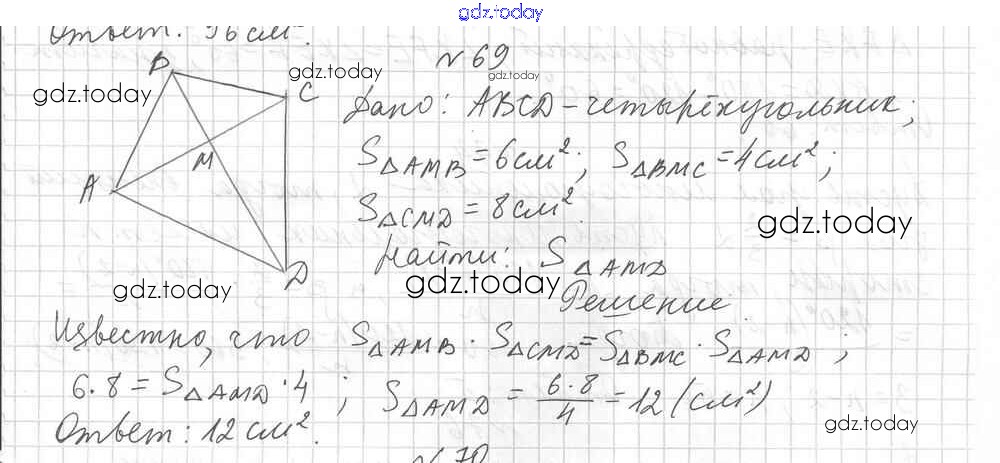 gdz.today
Ответ: 36 см².
N 69
B
C
M
A
D
gdz.today
gdz.today
gdz.today
Дано: ABCD – четырёхугольник;
S△AMB = 6 см²; S△BMC = 4 см²;
S△CMD = 8 см².
gdz.today
Найти: S△AMD
gdz.today
gdz.today
Решение
Известно, что S△AMB · S△CMD = S△BMC · S△AMD;
6·8 = S△AMD · 4; S△AMD = 6·8/4 = 12 (см²)
Ответ: 12 см².
gdz.today
N 70